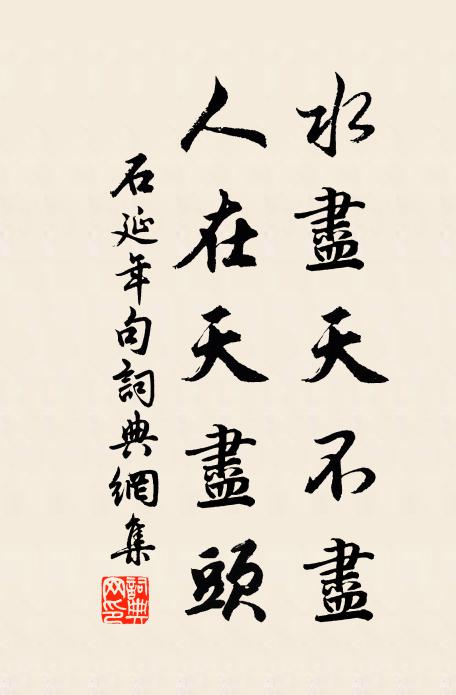 水盡天不盡
人在天盡頭
石延年句詞典網集
詞典網印